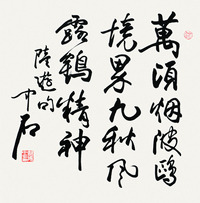 萬頃烟波鷗
境界九秋風
露鶴精神
陸遊句
中石